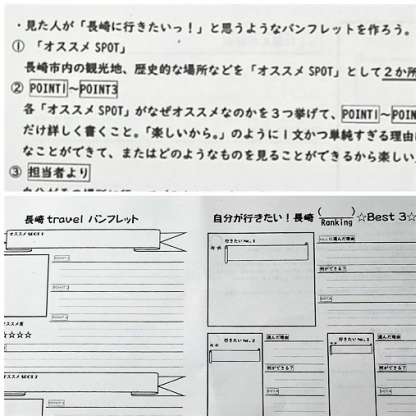 ・見た人が「長崎に行きたいっ！」と思うようなパンフレットを作ろう。
① 「オススメ SPOT」
長崎市内の観光地、歴史的な場所などを「オススメ SPOT」として２か所
② POINT1～POINT3
各「オススメ SPOT」がなぜオススメなのかを３つ挙げて、POINT1～POIN
だけ詳しく書くこと。「楽しいから。」のように１文かつ単純すぎる理由
なことができて、またはどのようなものを見ることができるから楽しい
③ 担当者より
長崎 travel パンフレット
オススメ SPOT 1
POINT1
POINT2
POINT3
オススメ度
☆☆☆☆
オススメ SPOT 2
自分が行きたい！長崎 ( ) Ranking ☆Best 3☆
行きたい No.1
ここに選んだ理由
何ができる？
行きたい No.2
選んだ理由
何ができる？
行きたい No.3
選んだ理由
何ができる？